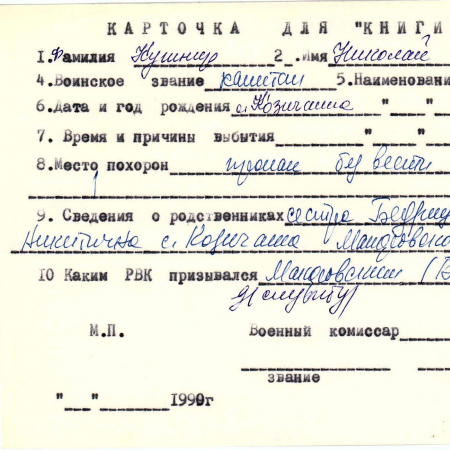 КАРТОЧКА ДЛЯ "КНИГИ
1. Фамилия Кушнир 2. Имя Николай
4. Воинское звание капитан 5. Наименовани
6. Дата и год рождения с. Козичанка " "
7. Время и причины выбытия " "
8. Место похорон пропал без вести
9. Сведения о родственниках сестра
Никитична с. Козичанка
10 Каким РВК призывался Макаровским
М.П. Военный комиссар
звание
"__"____ 1990г